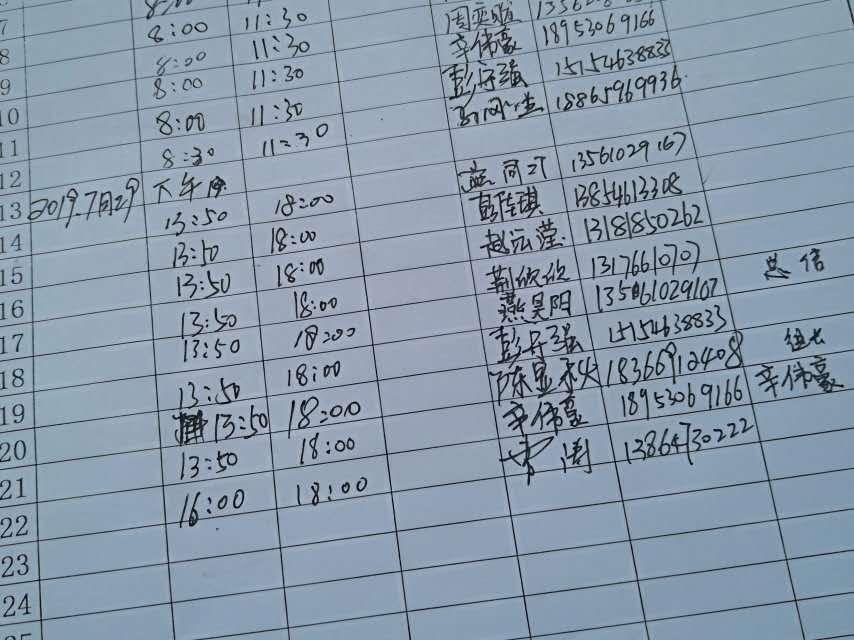 7 8:00 11:30
8 8:00 11:30 辛伟豪 18953069166
9 8:00 11:30 彭守强 15154638833
10 8:00 11:30 18865969936
11 8:30 11:30
12 下午 13561029167
13 2019.7月29 13:50 18:00 彭佳琪 13854613308
14 13:50 18:00 赵沄滢 13181850262
15 13:50 18:00 荆欣欣 13176610707
16 13:50 18:00 燕昊阳 13561029167 总 信
17 13:50 18:00 彭守强 15154638833
18 13:50 18:00 陈显 18366912408 组长
19 13:50 18:00 辛伟豪 18953069166 辛伟豪
20 13:50 18:00 13864730222
21 16:00 18:00
22
23
24